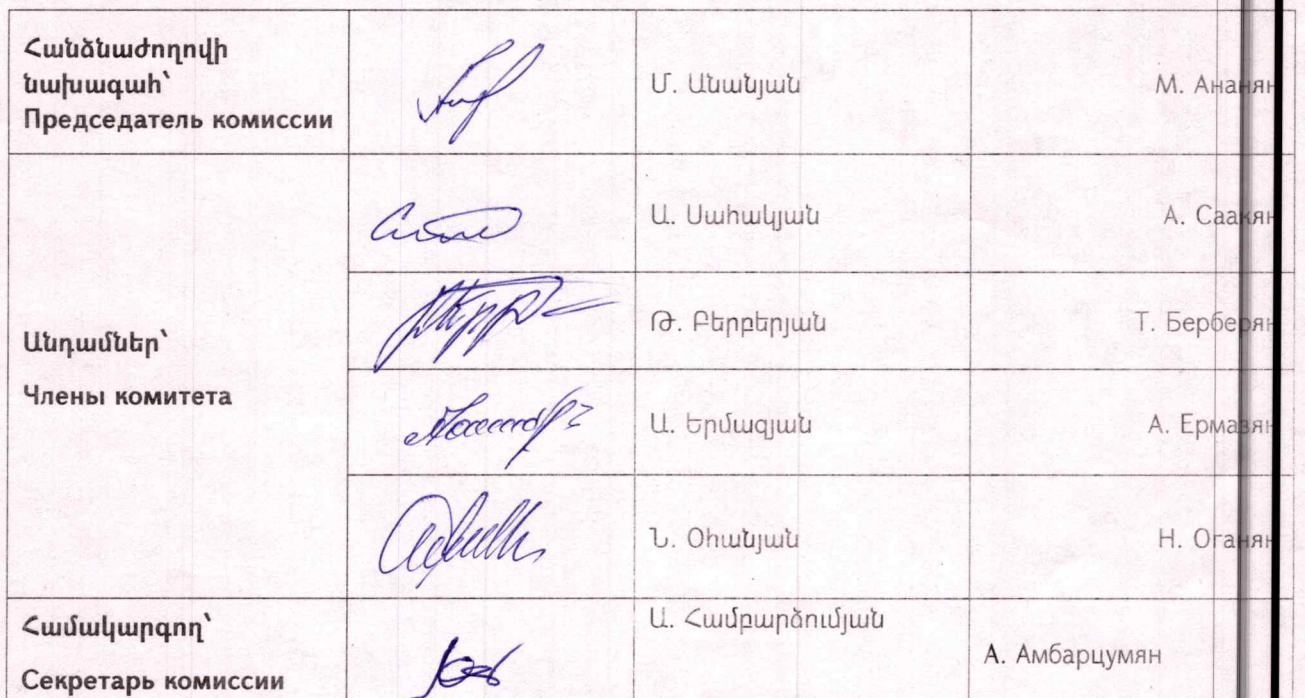 Հանձնաժողովի
նախագահ՝
Председатель комиссии
Մ. Անանյան
М. Ананян
Անդամներ՝
Члены комитета
Ա. Սահակյան
А. Саакян
Թ. Բերբերյան
Т. Берберян
Ա. Երմազյան
А. Ермазян
Ն. Օհանյան
Н. Оганян
Համակարգող՝
Секретарь комиссии
Ա. Համբարձումյան
А. Амбарцумян